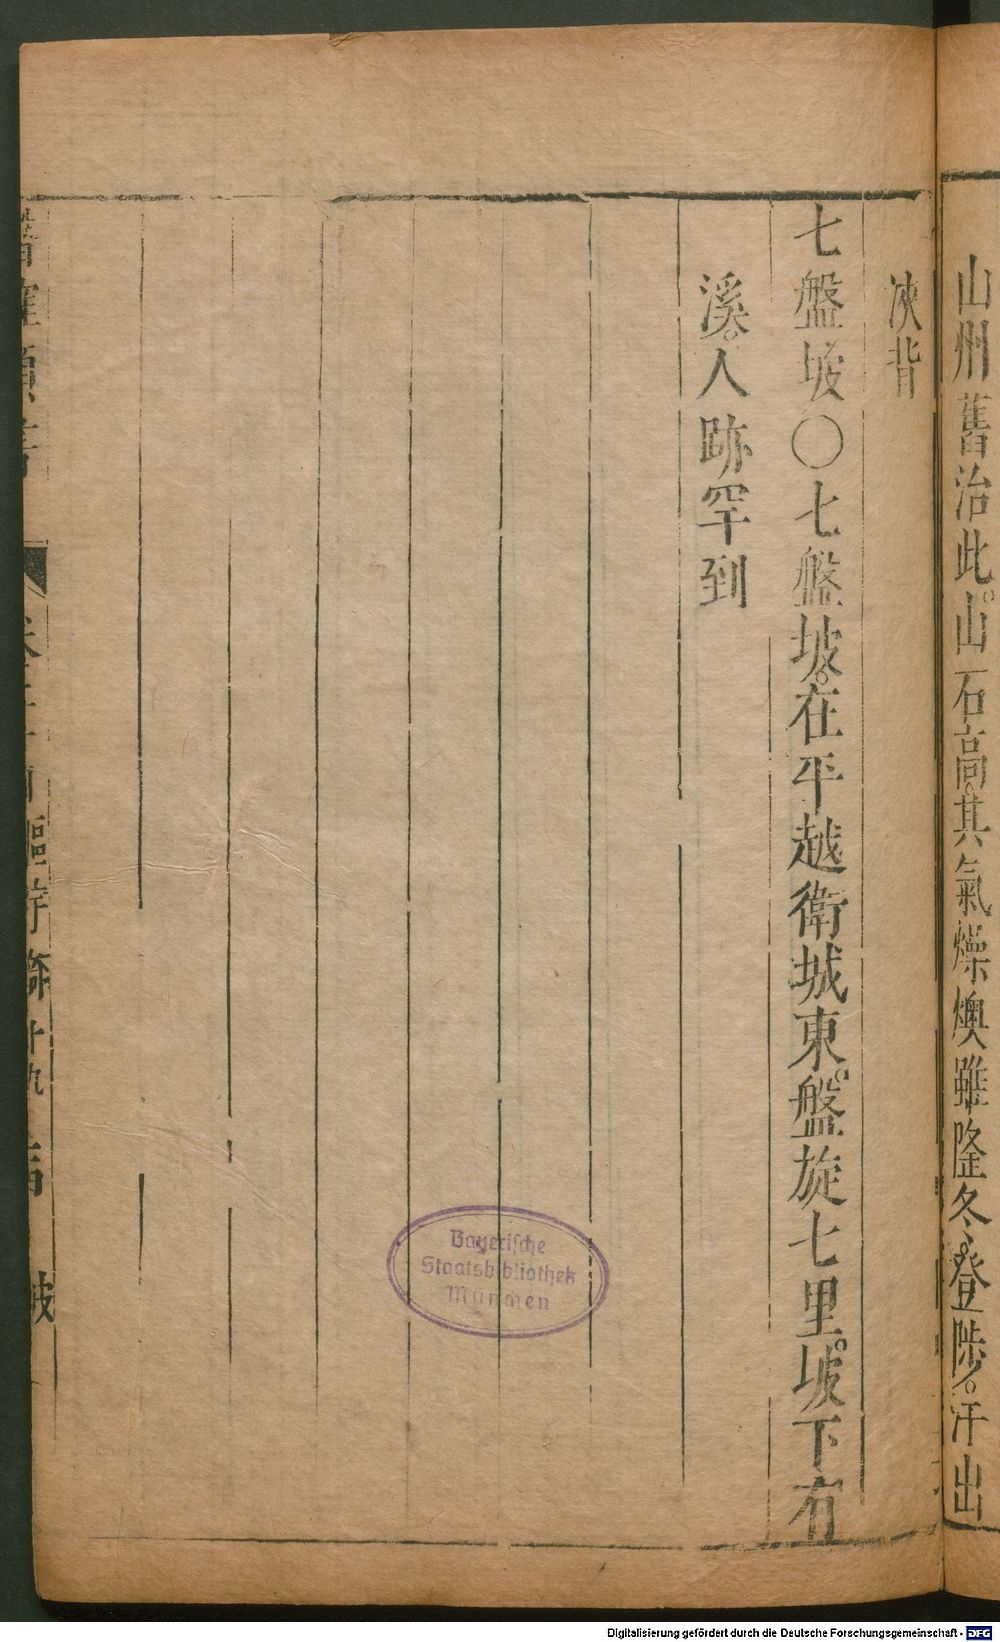 山州舊治此。山石高。其氣燥燠雖隆冬、登陟。汗出
浹背
七盤坡〇七盤坡。在平越衛城東。盤旋七里。坡下有
溪。人跡罕到
坡
Bayerische
Staatsbibliothek
München
Digitalisierung gefördert durch die Deutsche Forschungsgemeinschaft - DFG